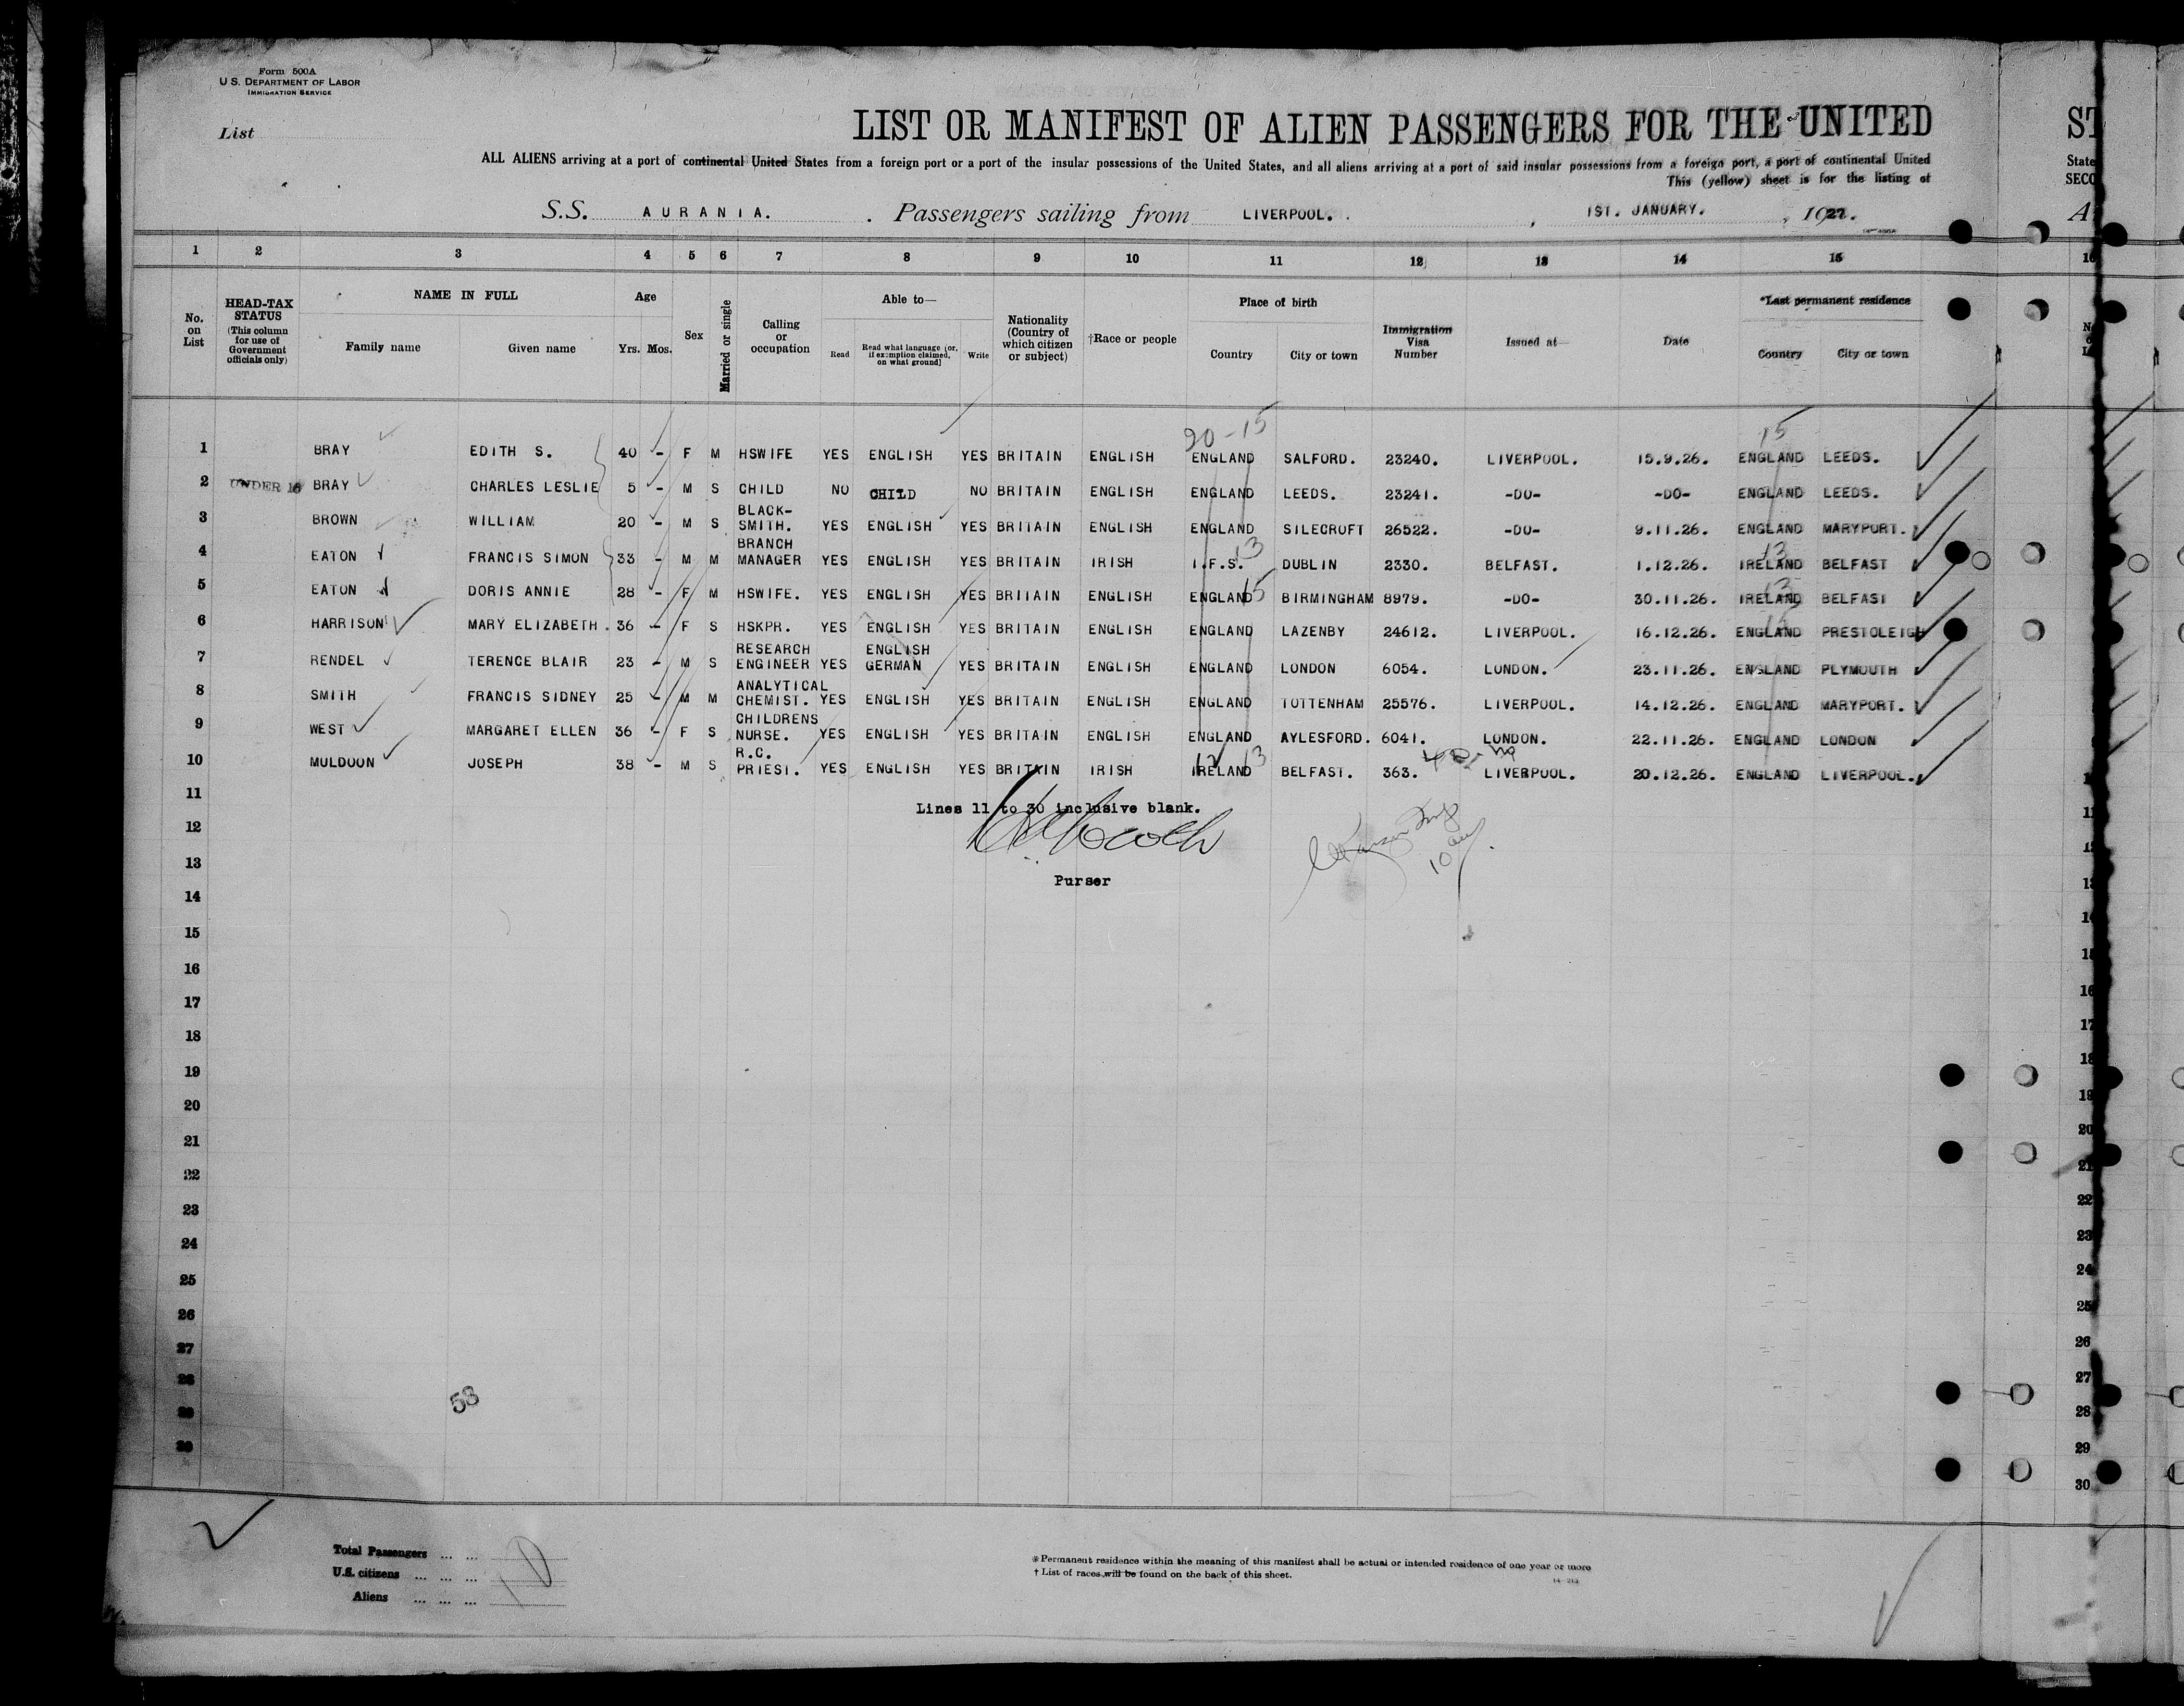 Form 500A
U.S. DEPARTMENT OF LABOR
IMMIGRATION SERVICE
List
LIST OR MANIFEST OF ALIEN PASSENGERS FOR THE UNITED
ST
ALL ALIENS arriving at a port of continental United States from a foreign port or a port of the insular possessions of the United States, and all aliens arriving at a port of said insular possessions from a foreign port, a port of continental United
State
This (yellow) sheet is for the listing of
SECO
S.S. AURANIA. . Passengers sailing from LIVERPOOL. , 1ST. JANUARY. , 1927.
1 2 3 4 5 6 7 8 9 10 11 12 13 14 15
No. on List
HEAD-TAX STATUS (This column for use of Government officials only)
NAME IN FULL
Family name Given name
Age
Yrs. Mos.
Sex
Married or single
Calling or occupation
Able to—
Read
Read what language [or, if exemption claimed, on what ground]
Write
Nationality (Country of which citizen or subject)
†Race or people
Place of birth
Country City or town
Immigration Visa Number
Issued at—
Date
*Last permanent residence
Country City or town
20-15 15
1 BRAY EDITH S. 40 - F M HSWIFE YES ENGLISH YES BRITAIN ENGLISH ENGLAND SALFORD. 23240. LIVERPOOL. 15.9.26. ENGLAND LEEDS.
2 UNDER 16 BRAY CHARLES LESLIE 5 - M S CHILD NO CHILD NO BRITAIN ENGLISH ENGLAND LEEDS. 23241. -DO- -DO- ENGLAND LEEDS.
3 BROWN WILLIAM 20 - M S BLACK-SMITH. YES ENGLISH YES BRITAIN ENGLISH ENGLAND SILECROFT 26522. -DO- 9.11.26. ENGLAND MARYPORT.
4 EATON FRANCIS SIMON 33 - M M BRANCH MANAGER YES ENGLISH YES BRITAIN IRISH I.F.S. 13 DUBLIN 2330. BELFAST. 1.12.26. IRELAND 13 BELFAST
5 EATON DORIS ANNIE 28 - F M HSWIFE. YES ENGLISH YES BRITAIN ENGLISH ENGLAND 15 BIRMINGHAM 8979. -DO- 30.11.26. IRELAND 13 BELFAST
6 HARRISON MARY ELIZABETH. 36 - F S HSKPR. YES ENGLISH YES BRITAIN ENGLISH ENGLAND LAZENBY 24612. LIVERPOOL. 16.12.26. ENGLAND 15 PRESTOLEIGH
7 RENDEL TERENCE BLAIR 23 - M S RESEARCH ENGINEER YES ENGLISH GERMAN YES BRITAIN ENGLISH ENGLAND LONDON 6054. LONDON. 23.11.26. ENGLAND PLYMOUTH
8 SMITH FRANCIS SIDNEY 25 - M M ANALYTICAL CHEMIST. YES ENGLISH YES BRITAIN ENGLISH ENGLAND TOTTENHAM 25576. LIVERPOOL. 14.12.26. ENGLAND MARYPORT.
9 WEST MARGARET ELLEN 36 - F S CHILDRENS NURSE. YES ENGLISH YES BRITAIN ENGLISH ENGLAND AYLESFORD. 6041. LONDON. 22.11.26. ENGLAND LONDON
10 MULDOON JOSEPH 38 - M S R.C. PRIEST. YES ENGLISH YES BRITAIN IRISH IRELAND 13 BELFAST. 363. LIVERPOOL. 20.12.26. ENGLAND LIVERPOOL.
11 Lines 11 to 30 inclusive blank.
12
13 Purser
14
15
16
17
18
19
20
21
22
23
24
25
26
27
28
29
30
53
Total Passengers ... ... 10
U.S. citizens ... ... ...
Aliens ... ... ...
*Permanent residence within the meaning of this manifest shall be actual or intended residence of one year or more
† List of races will be found on the back of this sheet.